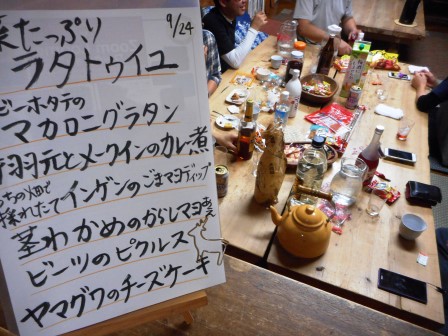 菜たっぷり
9/24
ラタトゥイユ
ビーホタテの
マカロニグラタン
手羽元とメークインのカレー煮
うちの畑で
採れたて インゲンのごまマヨディップ
茎わかめのからしマヨ和え
ビーツのピクルス
ヤマグワのチーズケーキ